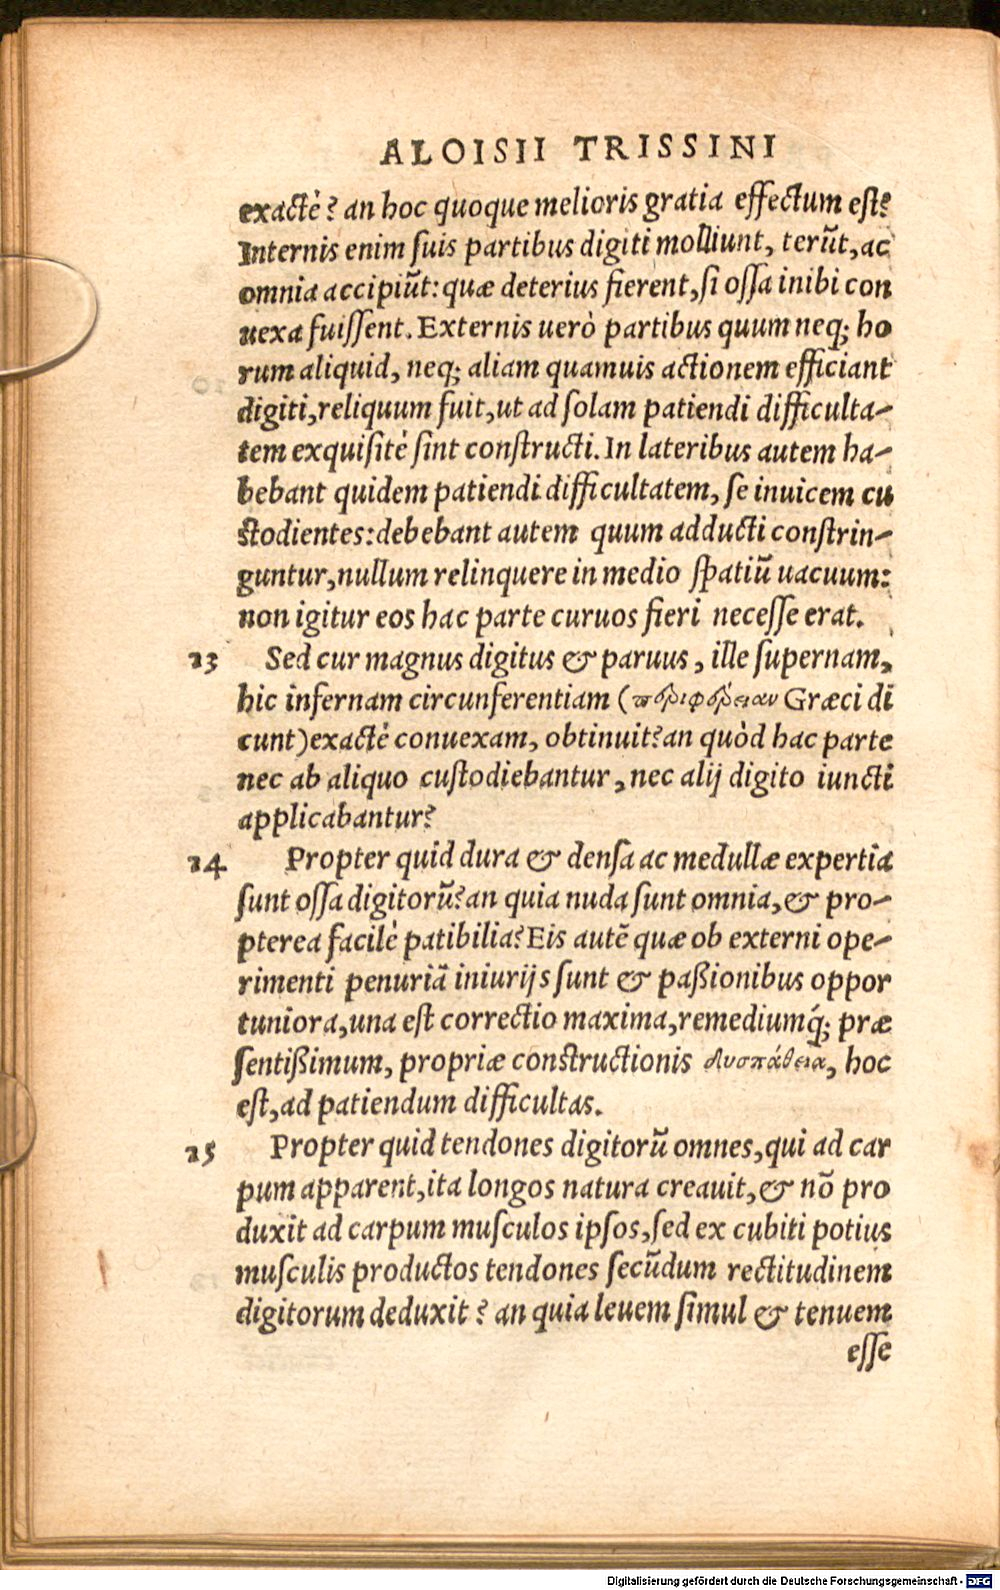 ALOISII TRISSINI
exactè? an hoc quoque melioris gratia effectum est?
Internis enim suis partibus digiti molliunt, terũt, ac
omnia accipiũt: quæ deterius fierent, si ossa inibi con
uexa fuissent. Externis uerò partibus quum neq; ho
rum aliquid, neq; aliam quamuis actionem efficiant
digiti, reliquum fuit, ut ad solam patiendi difficulta-
tem exquisitè sint constructi. In lateribus autem ha-
bebant quidem patiendi difficultatem, se inuicem cu
stodientes: debebant autem quum adducti constrin-
guntur, nullum relinquere in medio spatiũ uacuum:
non igitur eos hac parte curuos fieri necesse erat.
23 Sed cur magnus digitus & paruus, ille supernam,
hic infernam circunferentiam (περιφέρειαν Græci di
cunt) exactè conuexam, obtinuit? an quòd hac parte
nec ab aliquo custodiebantur, nec alij digito iuncti
applicabantur?
24 Propter quid dura & densa ac medullæ expertia
sunt ossa digitorũ? an quia nuda sunt omnia, & pro-
pterea facilè patibilia? Eis autẽ quæ ob externi ope-
rimenti penuriã iniurijs sunt & paßionibus oppor
tuniora, una est correctio maxima, remediumq́; præ
sentißimum, propriæ constructionis δυσπάθεια, hoc
est, ad patiendum difficultas.
25 Propter quid tendones digitorũ omnes, qui ad car
pum apparent, ita longos natura creauit, & nõ pro
duxit ad carpum musculos ipsos, sed ex cubiti potius
musculis productos tendones secũdum rectitudinem
digitorum deduxit? an quia leuem simul & tenuem
esse
Digitalisierung gefördert durch die Deutsche Forschungsgemeinschaft - DFG